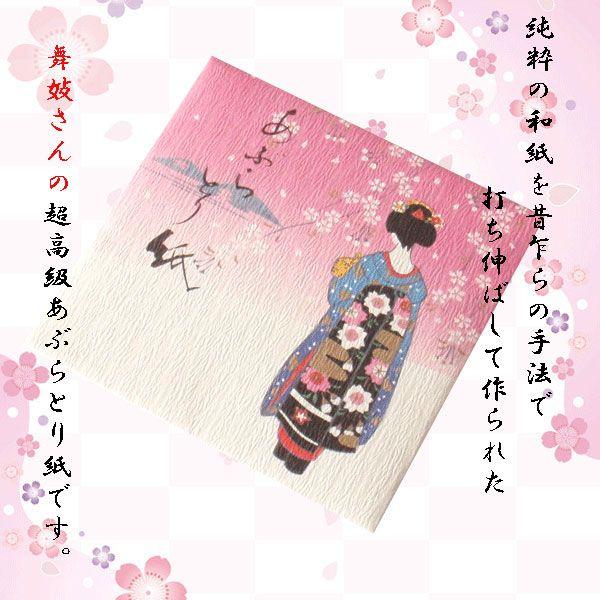 純粋の和紙を昔乍らの手法で
打ち伸ばして作られた
舞妓さんの超高級あぶらとり紙です。
あぶら
とり
紙